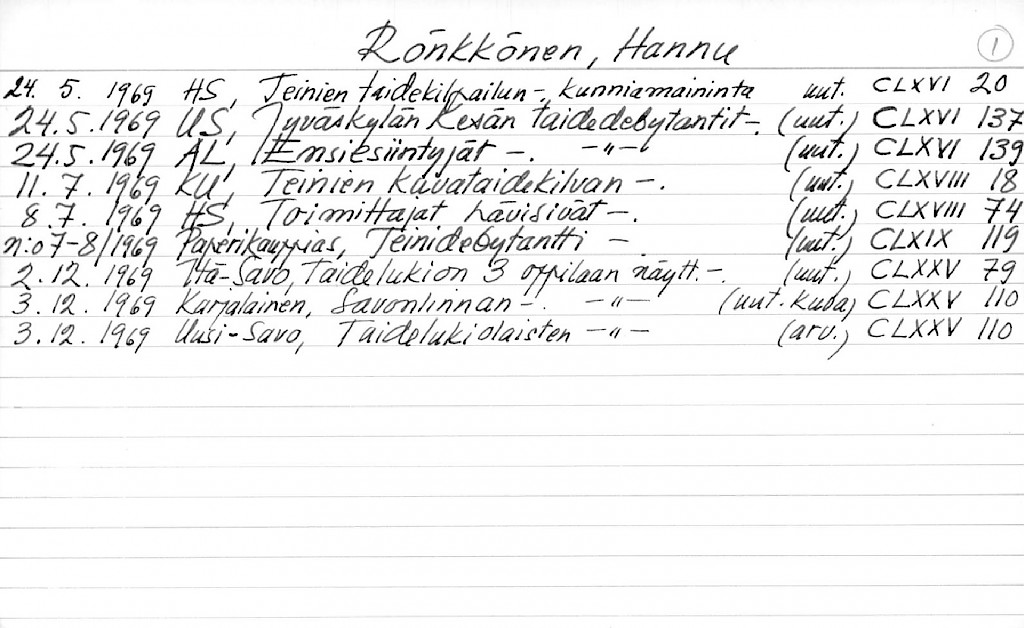 Rönkkönen, Hannu
1
24. 5. 1969 HS, Teinien taidekilpailun -. kunniamaininta uut. CLXVI 20
24.5.1969 US, Jyväskylän Kesän taidedebytantit -. (uut.) CLXVI 137
24.5.1969 AL, Ensiesiintyjät -. -"- (uut.) CLXVI 139
11. 7. 1969 KU, Teinien kuvataidekilvan -. (uut.) CLXVIII 18
8.7. 1969 HS, Toimittajat hävisivät -. (uut.) CLXVIII 74
n:o 7-8/1969 Paperikauppias, Teinidebytantti - (uut.) CLXIX 119
2.12. 1969 Itä-Savo, Taidelukion 3 oppilaan näytt. -. (uut.) CLXXV 79
3. 12. 1969 Karjalainen, Savonlinnan -. -"- (uut. kuva) CLXXV 110
3.12. 1969 Uusi-Savo, Taidelukiolaisten -"- (arv.) CLXXV 110